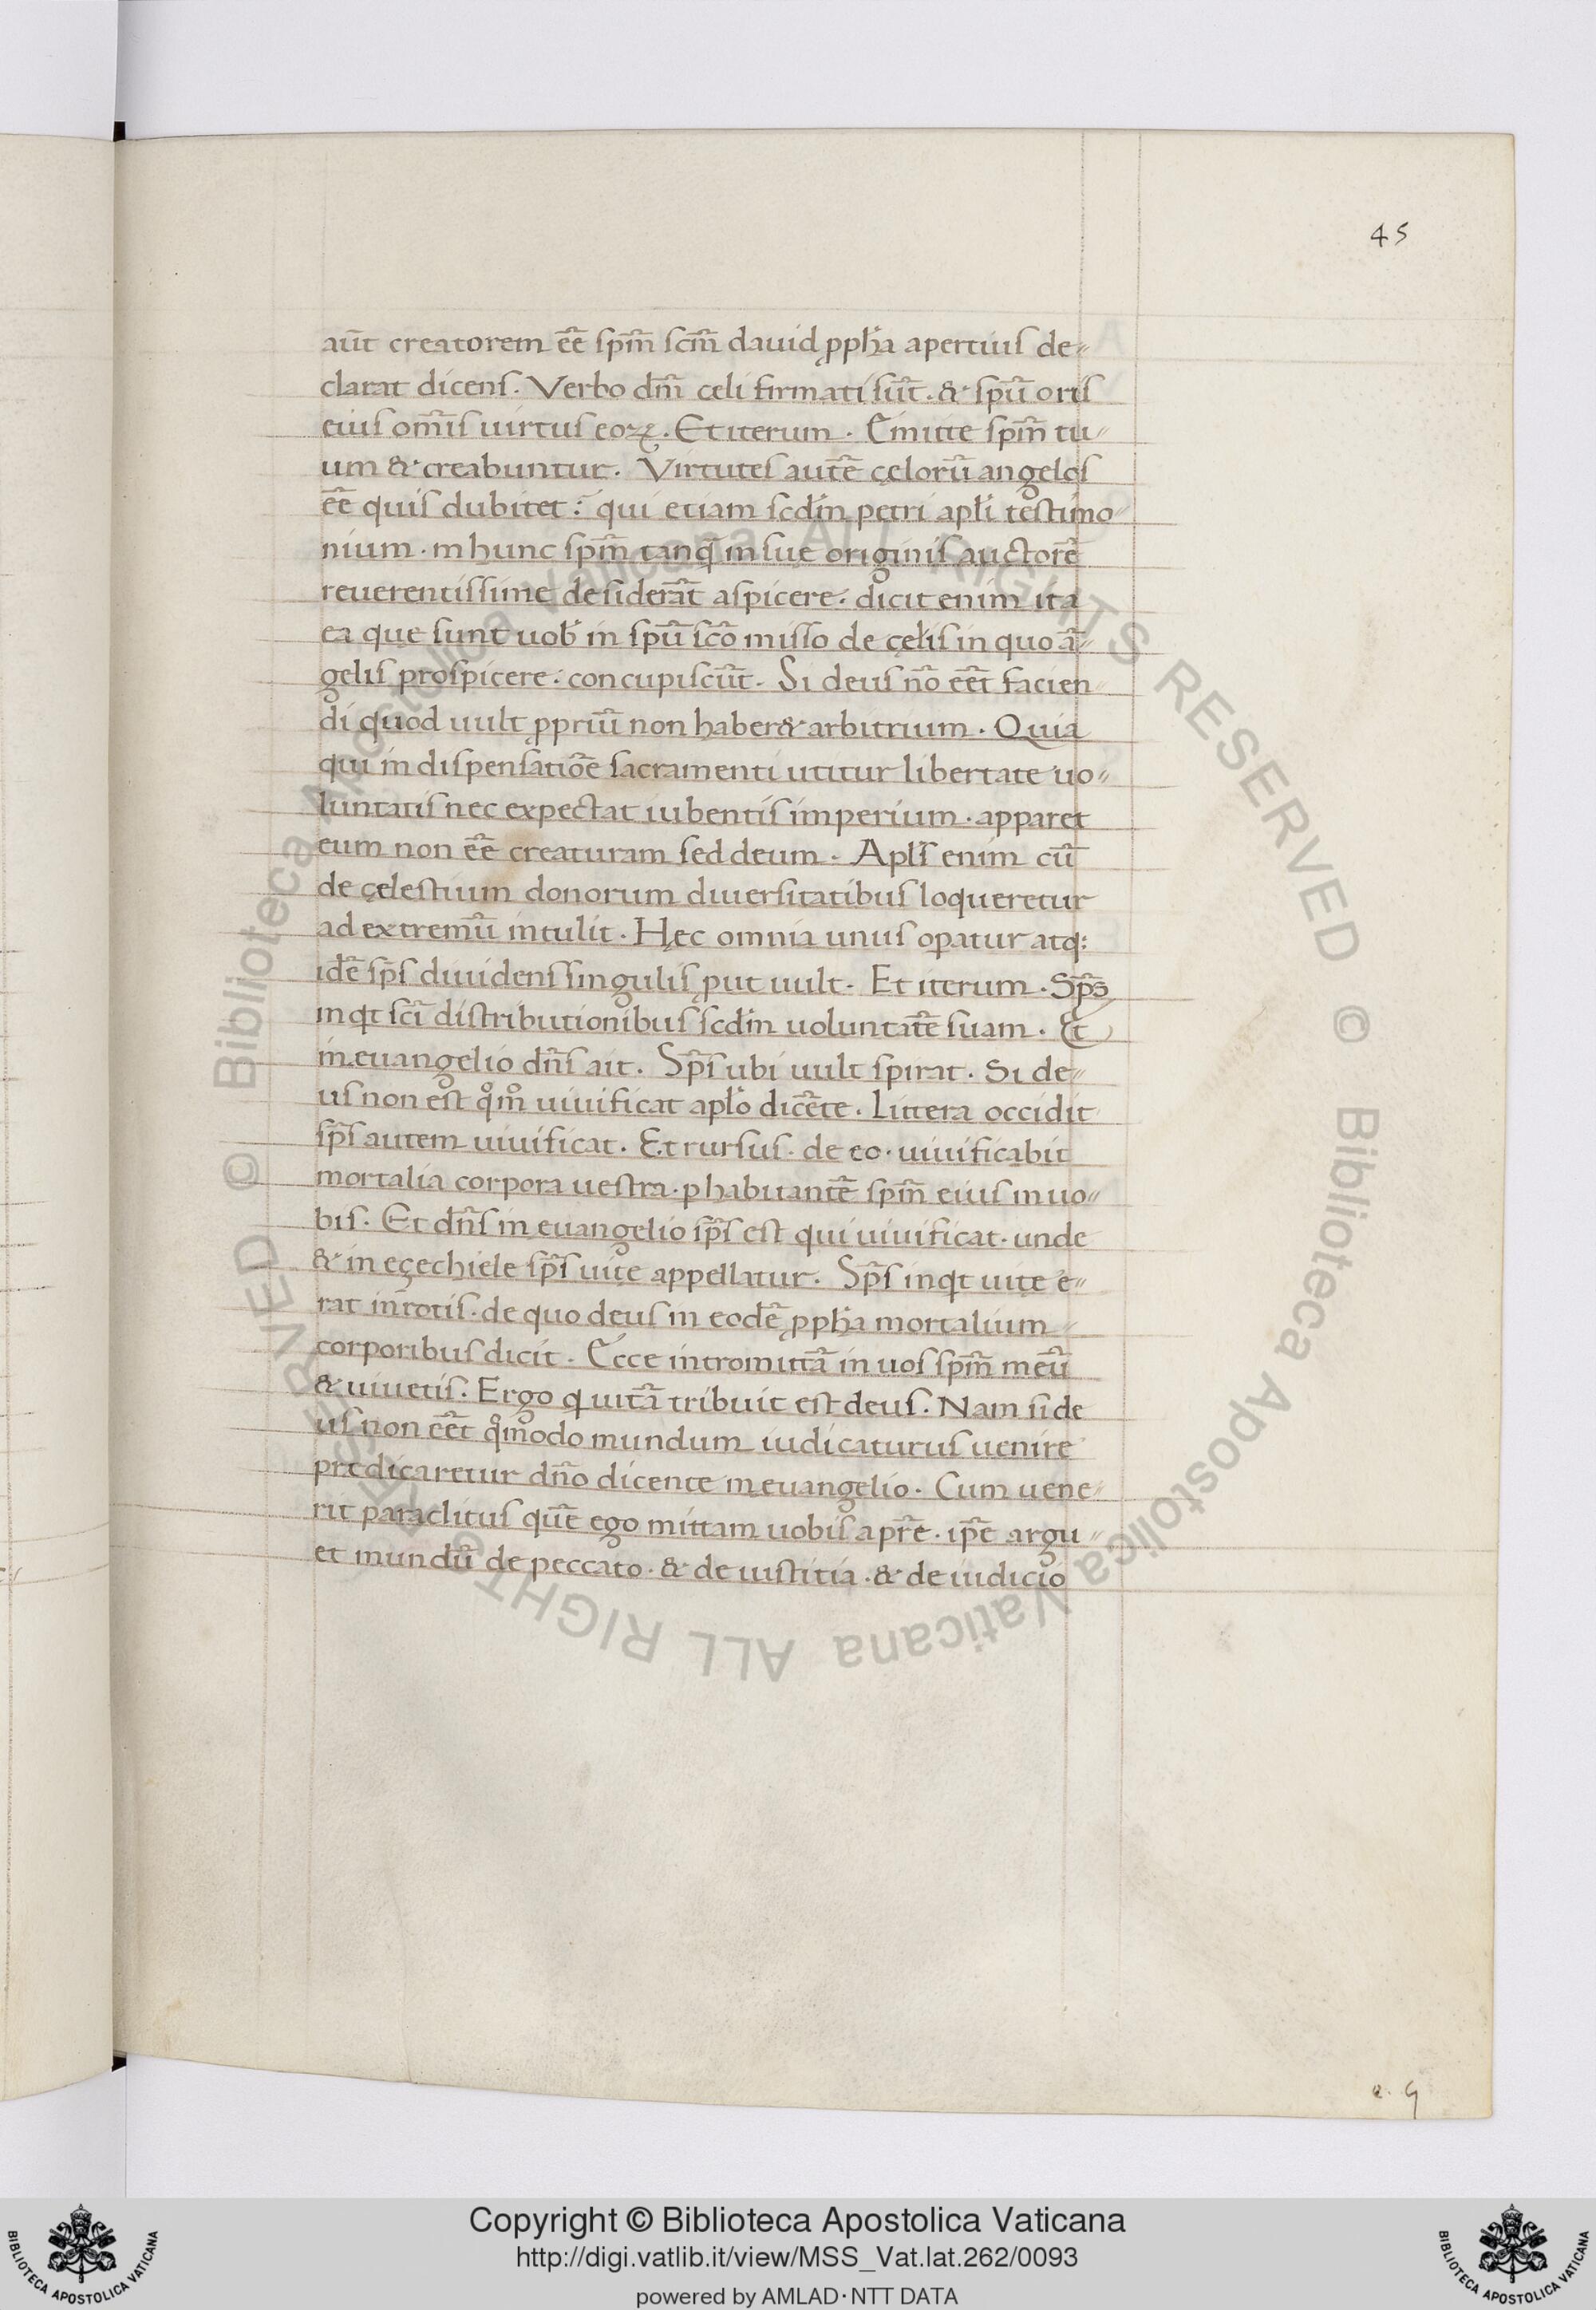 45
aūt creatorem eē̄ spm̄ scm̄ dauid ꝓpha apertius de-
clarat dicens. Verbo dm̄ cęli firmati sūt. & spū oris
eius om̄is uirtus eoꝝ. Et iterum. Emitte spm̄ tu-
um & creabuntur. Virtutes autē cęlorū angelos
eē̄ quis dubitet: qui etiam scdm petri apli testimo-
nium. in hunc spm̄ tanq̄ in suę originis auctorē
reuerentissime desiderāt aspicere. dicit enim ita
ea que sunt uob in spū scō misso de cęlis in quo ā-
gelis prospicere. concupiscūt. Si deus nō eēt facien-
di quod uult ꝓpriū non haber& arbitrium. Quia
qui in dispensatiōe sacramenti utitur libertate uo-
luntatis nec expectat iubentis imperium. apparet
eum non eē̄ creaturam sed deum. Apls enim cū
de cęlestium donorum diuersitatibus loqueretur
ad extremū intulit. Hęc omnia unus oꝑatur atq:
idē sps̄ diuidens singulis ꝓut uult. Et iterum. Sps̄
inqt scī distributionibus scdm uoluntatē suam. Et
in euangelio dn̄s ait. Sps̄ ubi uult spirat. Si de-
us non est qm̊ uiuificat aplo dicēte. Littera occidit
sps̄ autem uiuificat. Et rursus. de eo. uiuificabit
mortalia corpora uestra. ꝑ habitantē spm̄ eius in uo-
bis. Et dn̄s in euangelio sps̄ est qui uiuificat. unde
& in eçechiele sps̄ uitę appellatur. Sps̄ inqt uitę e-
rat in rotis. de quo deus in eodē ꝓpha mortalium
corporibus dicit. Ecce intromittā in uos spm̄ meū
& uiuetis. Ergo q uitā tribuit est deus. Nam si de
us non eēt qm̊odo mundum iudicaturus uenire
prędicaretur dn̄o dicente in euangelio. Cum uene-
rit paraclitus quē ego mittam uobis a pr̄e. ip̄e argu-
et mundū de peccato. & de iustitia. & de iudicio
Copyright © Biblioteca Apostolica Vaticana
http://digi.vatlib.it/view/MSS_Vat.lat.262/0093
powered by AMLAD·NTT DATA